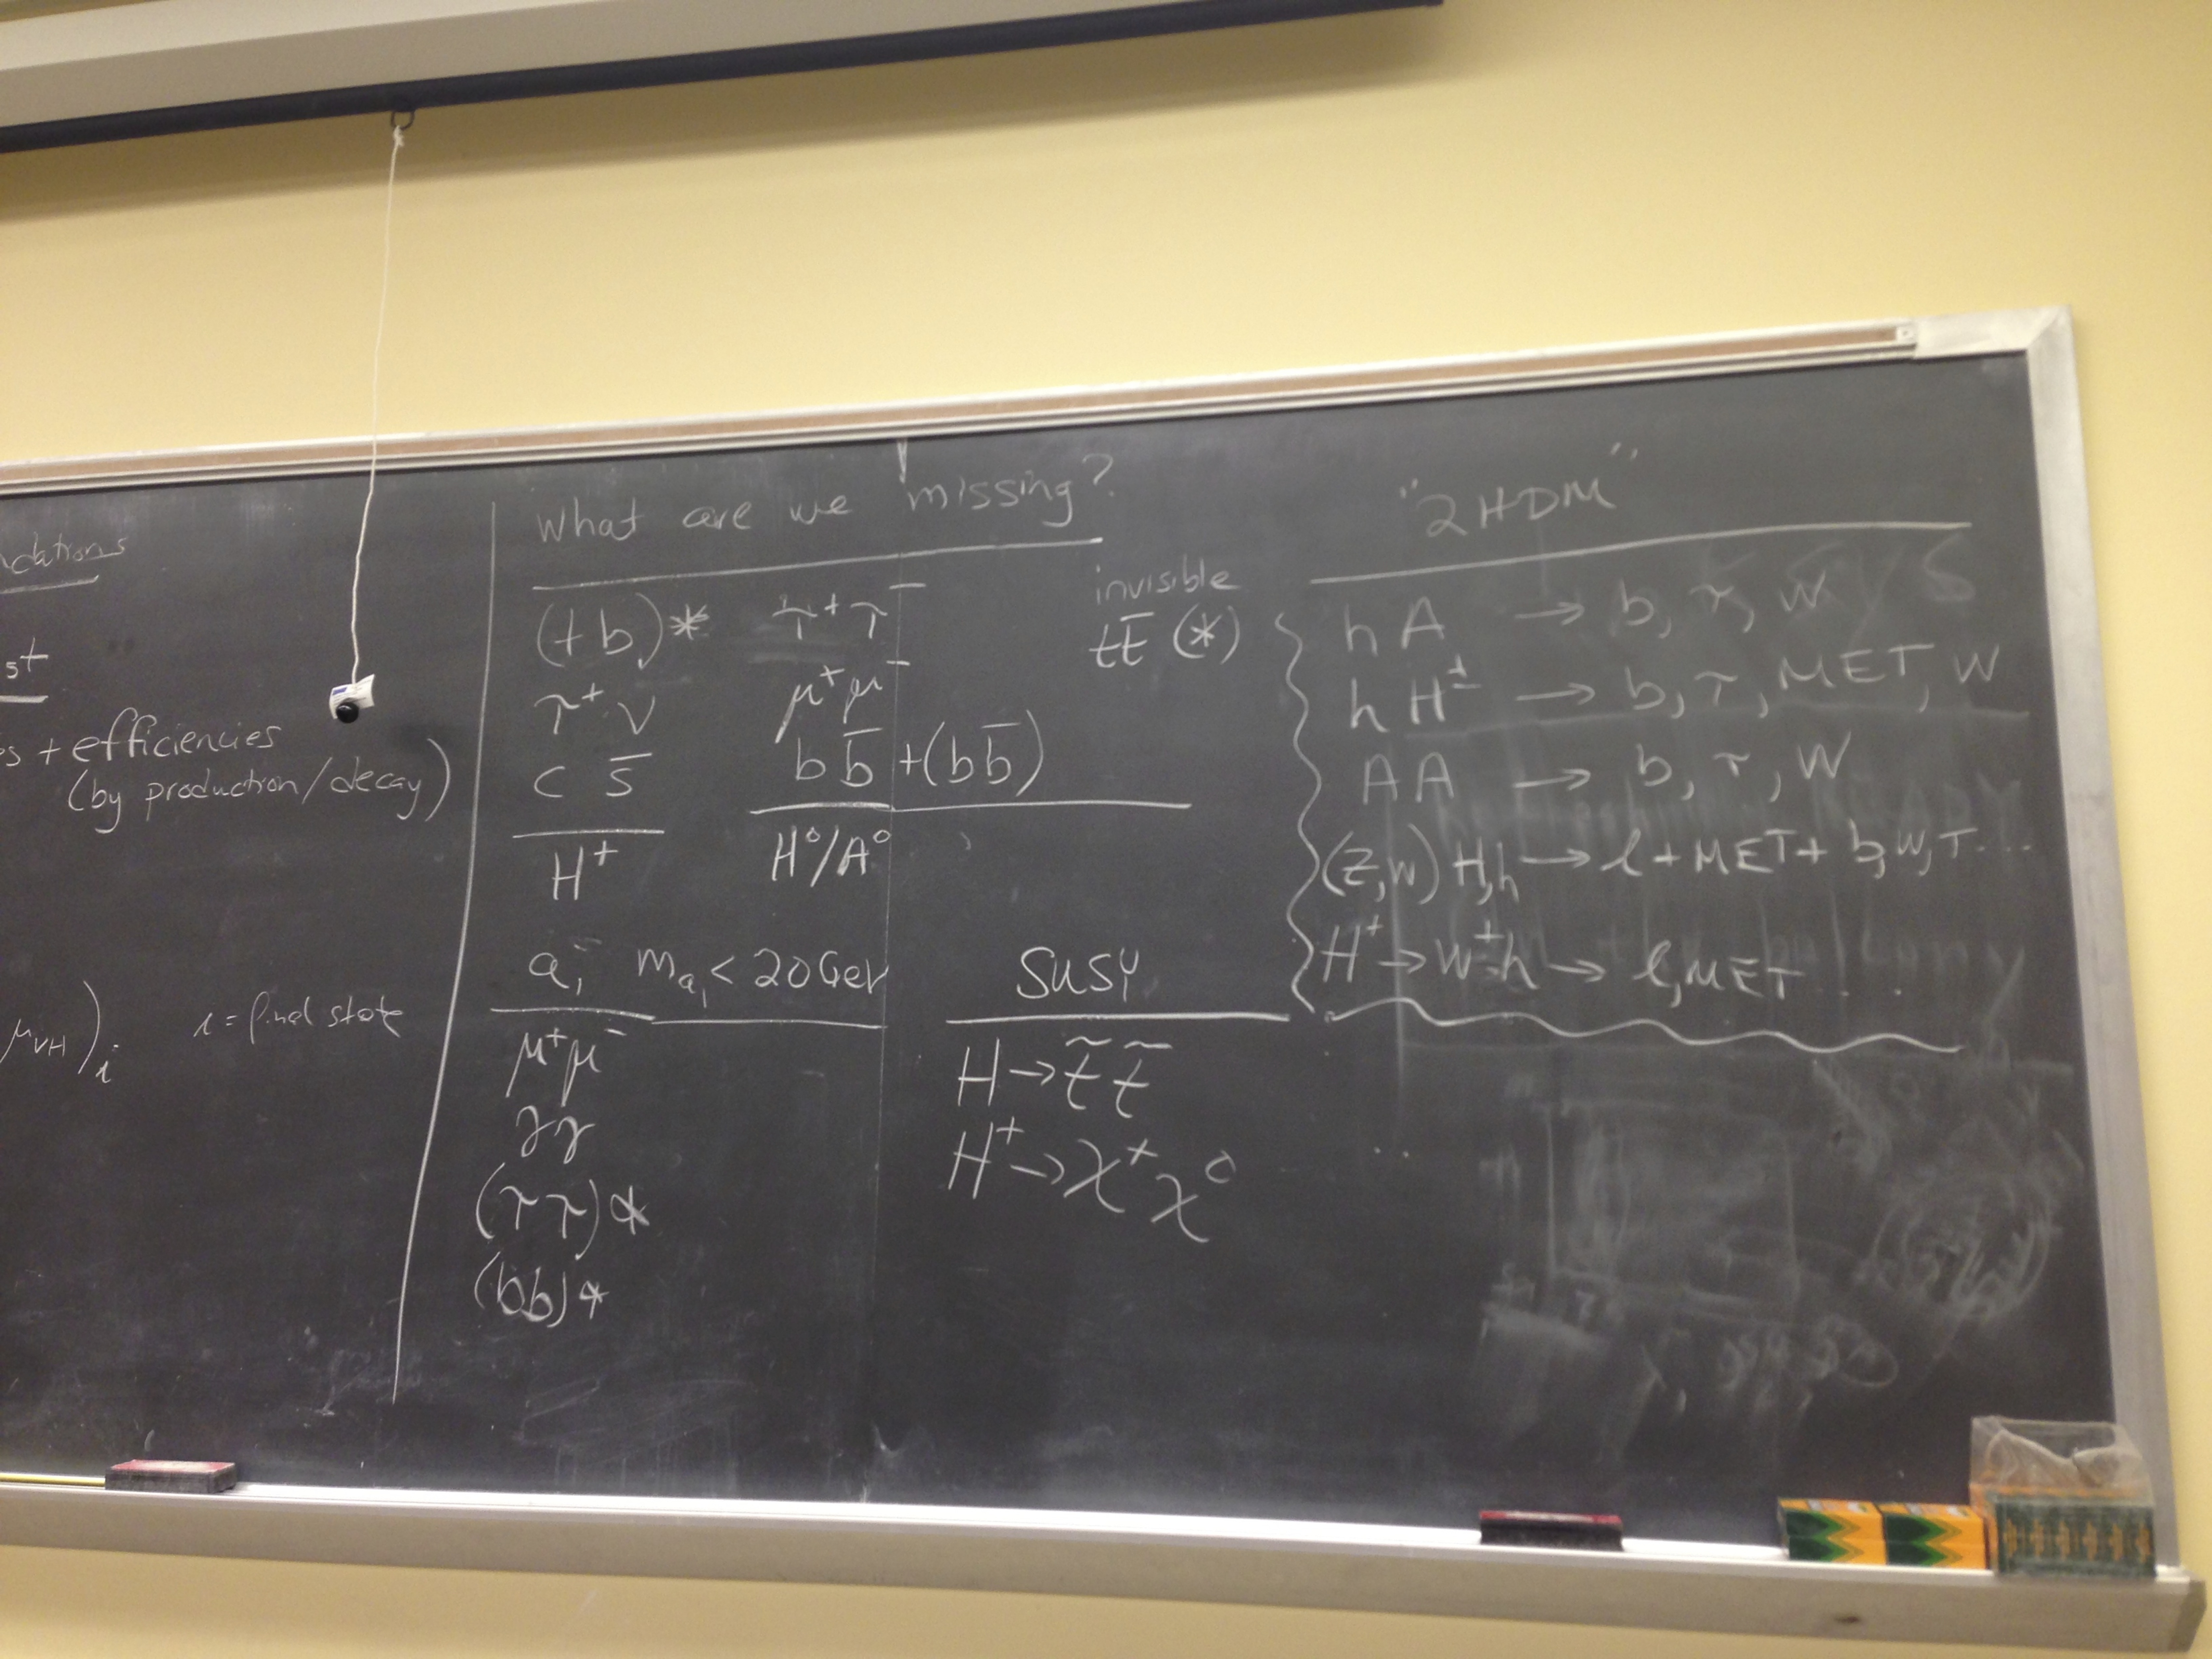 ndations
st
s + efficiencies
(by production/decay)
μ_VH)_i   i = final state
What are we missing?
(tb)*   τ⁺τ⁻   invisible
tt̄ (*)
τ⁺ν   μ⁺μ⁻
c s̄   bb̄ + (bb̄)
H⁺   H⁰/A⁰
a₁   m_a₁ < 20 GeV
μ⁺μ⁻
γγ
(ττ)*
(bb)*
SUSY
H → t̃ t̃
H⁺ → χ⁺χ⁰
"2HDM"
hA → b, τ, W
hH± → b, τ, MET, W
AA → b, τ, W
(Z,W) H,h → l + MET + b, W, τ...
H⁺ → W⁺h → l, MET...